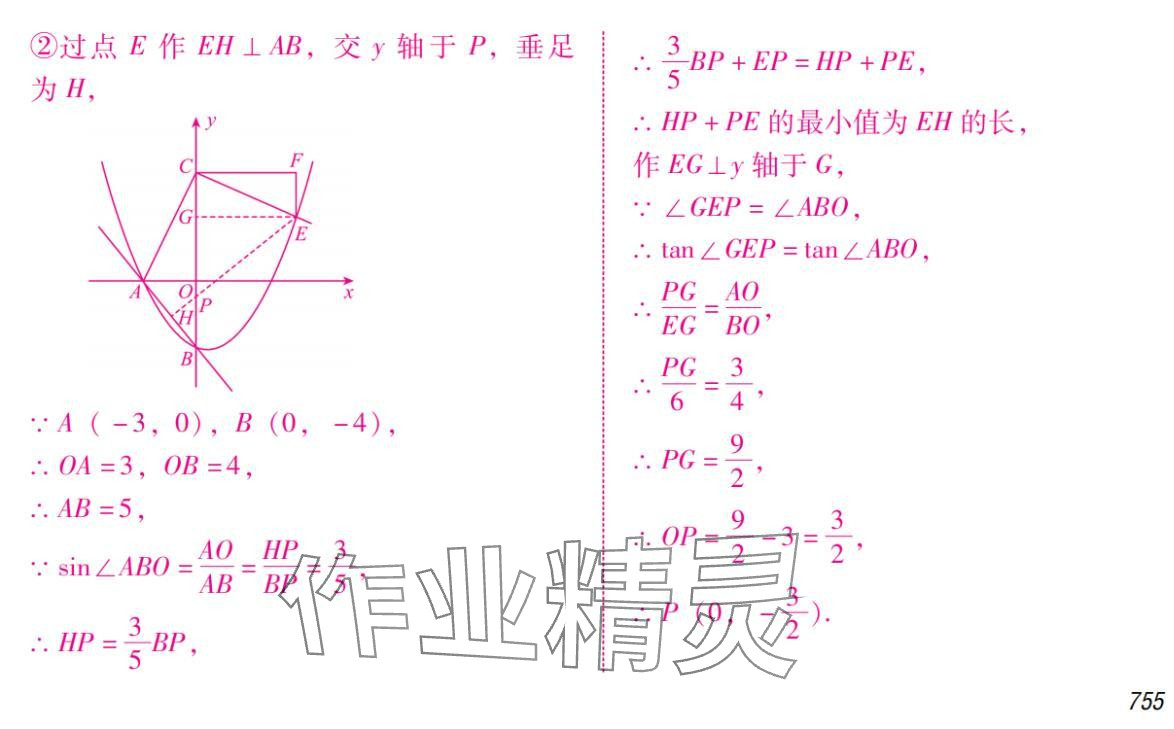 ②过点 E 作 EH⊥AB, 交 y 轴于 P, 垂足
为 H,
y
C
F
G
E
A
O
x
P
H
B
∵ A (-3, 0), B (0, -4),
∴ OA=3, OB=4,
∴ AB=5,
∵ sin∠ABO=AO/AB=HP/BP=3/5,
∴ HP=3/5BP,
∴ 3/5BP+EP=HP+PE,
∴ HP+PE 的最小值为 EH 的长,
作 EG⊥y 轴于 G,
∵ ∠GEP=∠ABO,
∴ tan∠GEP=tan∠ABO,
∴ PG/EG=AO/BO,
∴ PG/6=3/4,
∴ PG=9/2,
∴ OP=9/2-3=3/2,
∴ P (0, -3/2).
作业精灵
755